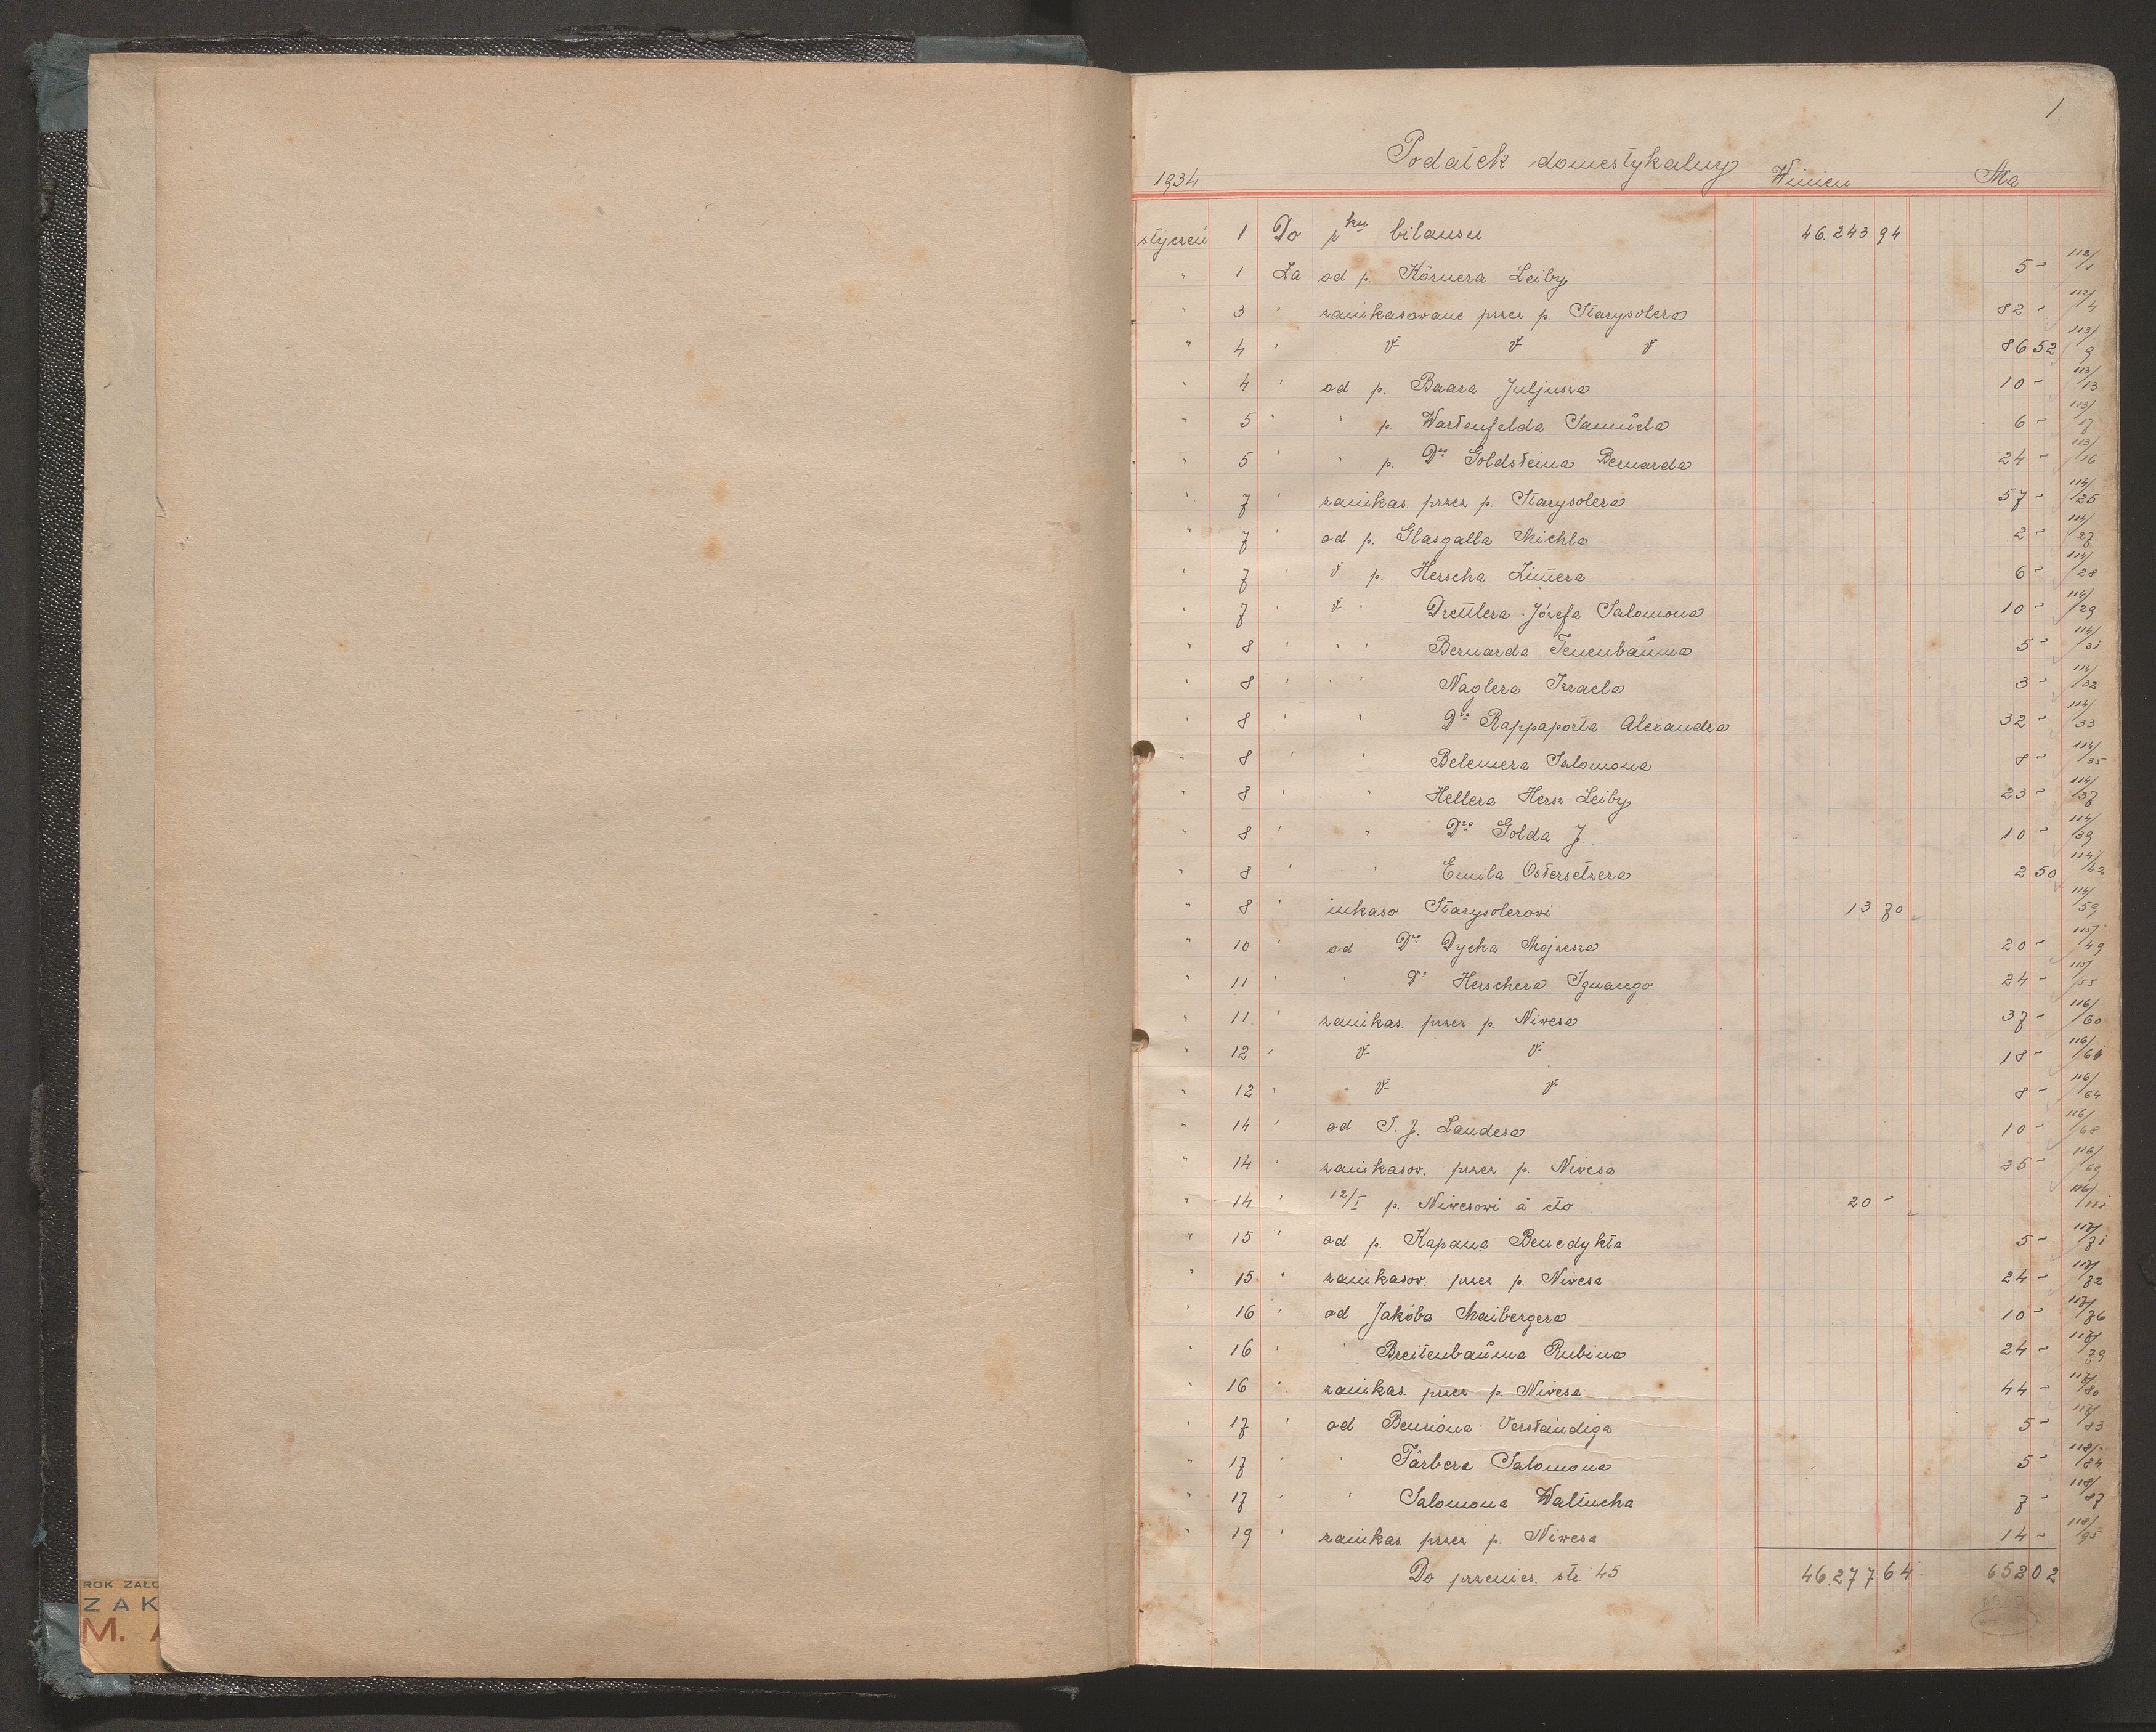 ROK ZAŁO
ZAK
M. A
1.
Podatek domestykalny
1934 Winien Ma
styczeń 1 Do rku bilansu 46.243 94
" 1 Za od p. Körnera Leiby 5 - 112/1
" 3 " zainkasowane przez p. Starysolera 82 - 112/4
" 4 " " " " 86 52 113/9
" 4 " od p. Baara Juljusza 10 - 113/13
" 5 " " p. Wartenfelda Samuela 6 - 113/17
" 5 " " p. Dra Goldsteina Bernarda 24 - 113/16
" 7 " zainkas. przez p. Starysolera 57 - 114/25
" 7 " od p. Glasgalla Michla 2 - 114/27
" 7 " " p. Herscha Zimera 6 - 114/28
" 7 " " " Drettlera Józefa Salomona 10 - 114/29
" 8 " " " Bernarda Tenenbauma 5 - 114/31
" 8 " " " Naglera Izraela 3 - 114/32
" 8 " " Dra Rappaporta Alexandra 32 - 114/33
" 8 " " Belemera Salomona 8 - 114/35
" 8 " " Hellera Hersz Leiby 23 - 114/37
" 8 " " Dra Golda J. 10 - 114/39
" 8 " " Emila Ostersetzera 2 50 114/42
" 8 " inkaso Starysolerowi 13 70 114/59
" 10 " od Dra Dycha Mojżesza 20 - 115/49
" 11 " " Dr Herschera Ignacego 24 - 115/55
" 11 " zainkas. przez p. Niwesa 37 - 116/60
" 12 " " " 18 - 116/61
" 12 " " " 8 - 116/64
" 14 " od S. J. Landesa 10 - 116/68
" 14 " zainkasow. przez p. Niwesa 25 - 116/69
" 14 " 12/I p. Niwesowi à cto 20 - 116/111
" 15 " od p. Kapana Benedykta 5 - 117/71
" 15 " zainkasow. przez p. Niwesa 24 - 117/72
" 16 " od Jakóba Maibergera 10 - 117/76
" 16 " " Breitenbauma Rubina 24 - 117/79
" 16 " zainkas. przez p. Niwesa 44 - 117/80
" 17 " od Benziona Verständiga 5 - 117/83
" 17 " " Färbera Salomona 5 - 118/84
" 17 " " Salomona Waltucha 7 - 118/87
" 19 " zainkas. przez p. Niwesa 14 - 118/95
Do przenies. str. 45 46.277 64 652 02